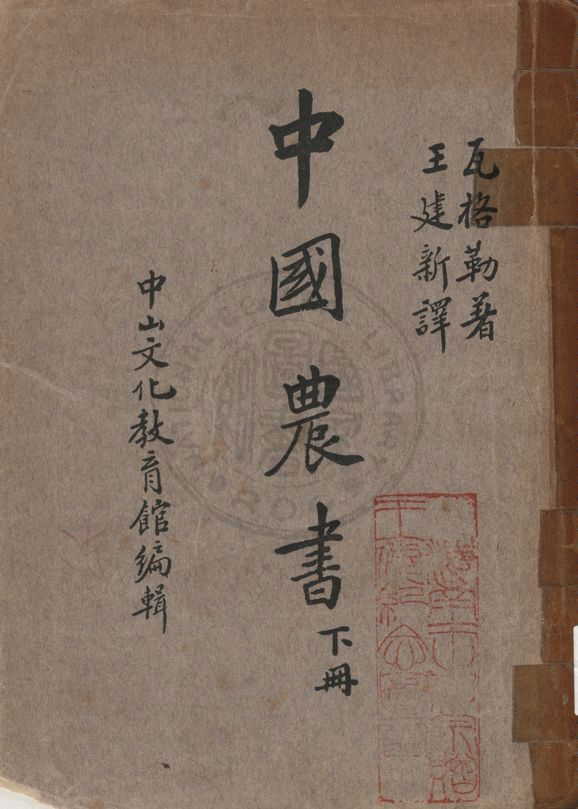 瓦格勒著
王建新譯
中國農書下冊
中山文化教育館編輯